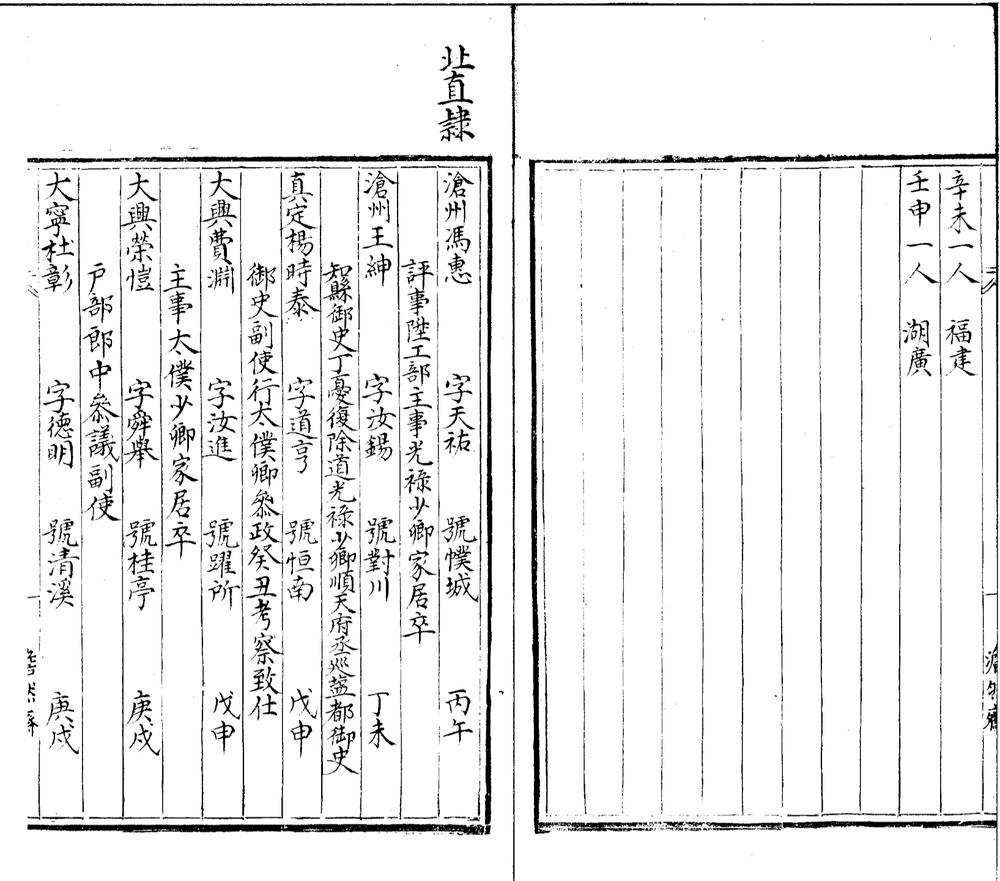 辛未一人 福建
壬申一人 湖廣
北直隸
滄州馮惠 字天祐 號幞城 丙午
評事陞工部主事光祿少卿家居卒
滄州王紳 字汝錫 號對川 丁未
知縣御史丁憂復除道光祿少卿順天府丞巡盐都御史
真定楊時泰 字道亨 號恒南 戊申
御史副使行太僕卿叅政癸丑考察致仕
大興費淵 字汝進 號躍所 戊申
主事太僕少卿家居卒
大興榮愷 字舜舉 號桂亭 庚戌
戶部郎中叅議副使
大寧杜彰 字德明 號清溪 庚戌